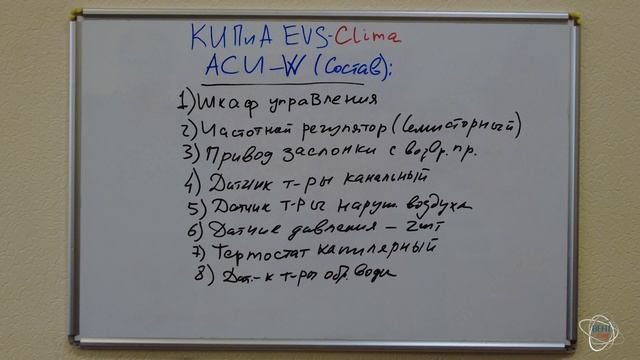 КИПиА EVS-Clima
АСU-W (Состав):
1) Шкаф управления
2) Частотный регулятор (Семисторный)
3) Привод заслонки с возвр. пр.
4) Датчик т-ры канальный
5) Датчик т-ры наруж. воздуха
6) Датчие давления - 2шт
7) Термостат капилярный
8) Дат-к т-ры обр. воды
ВЕНТ